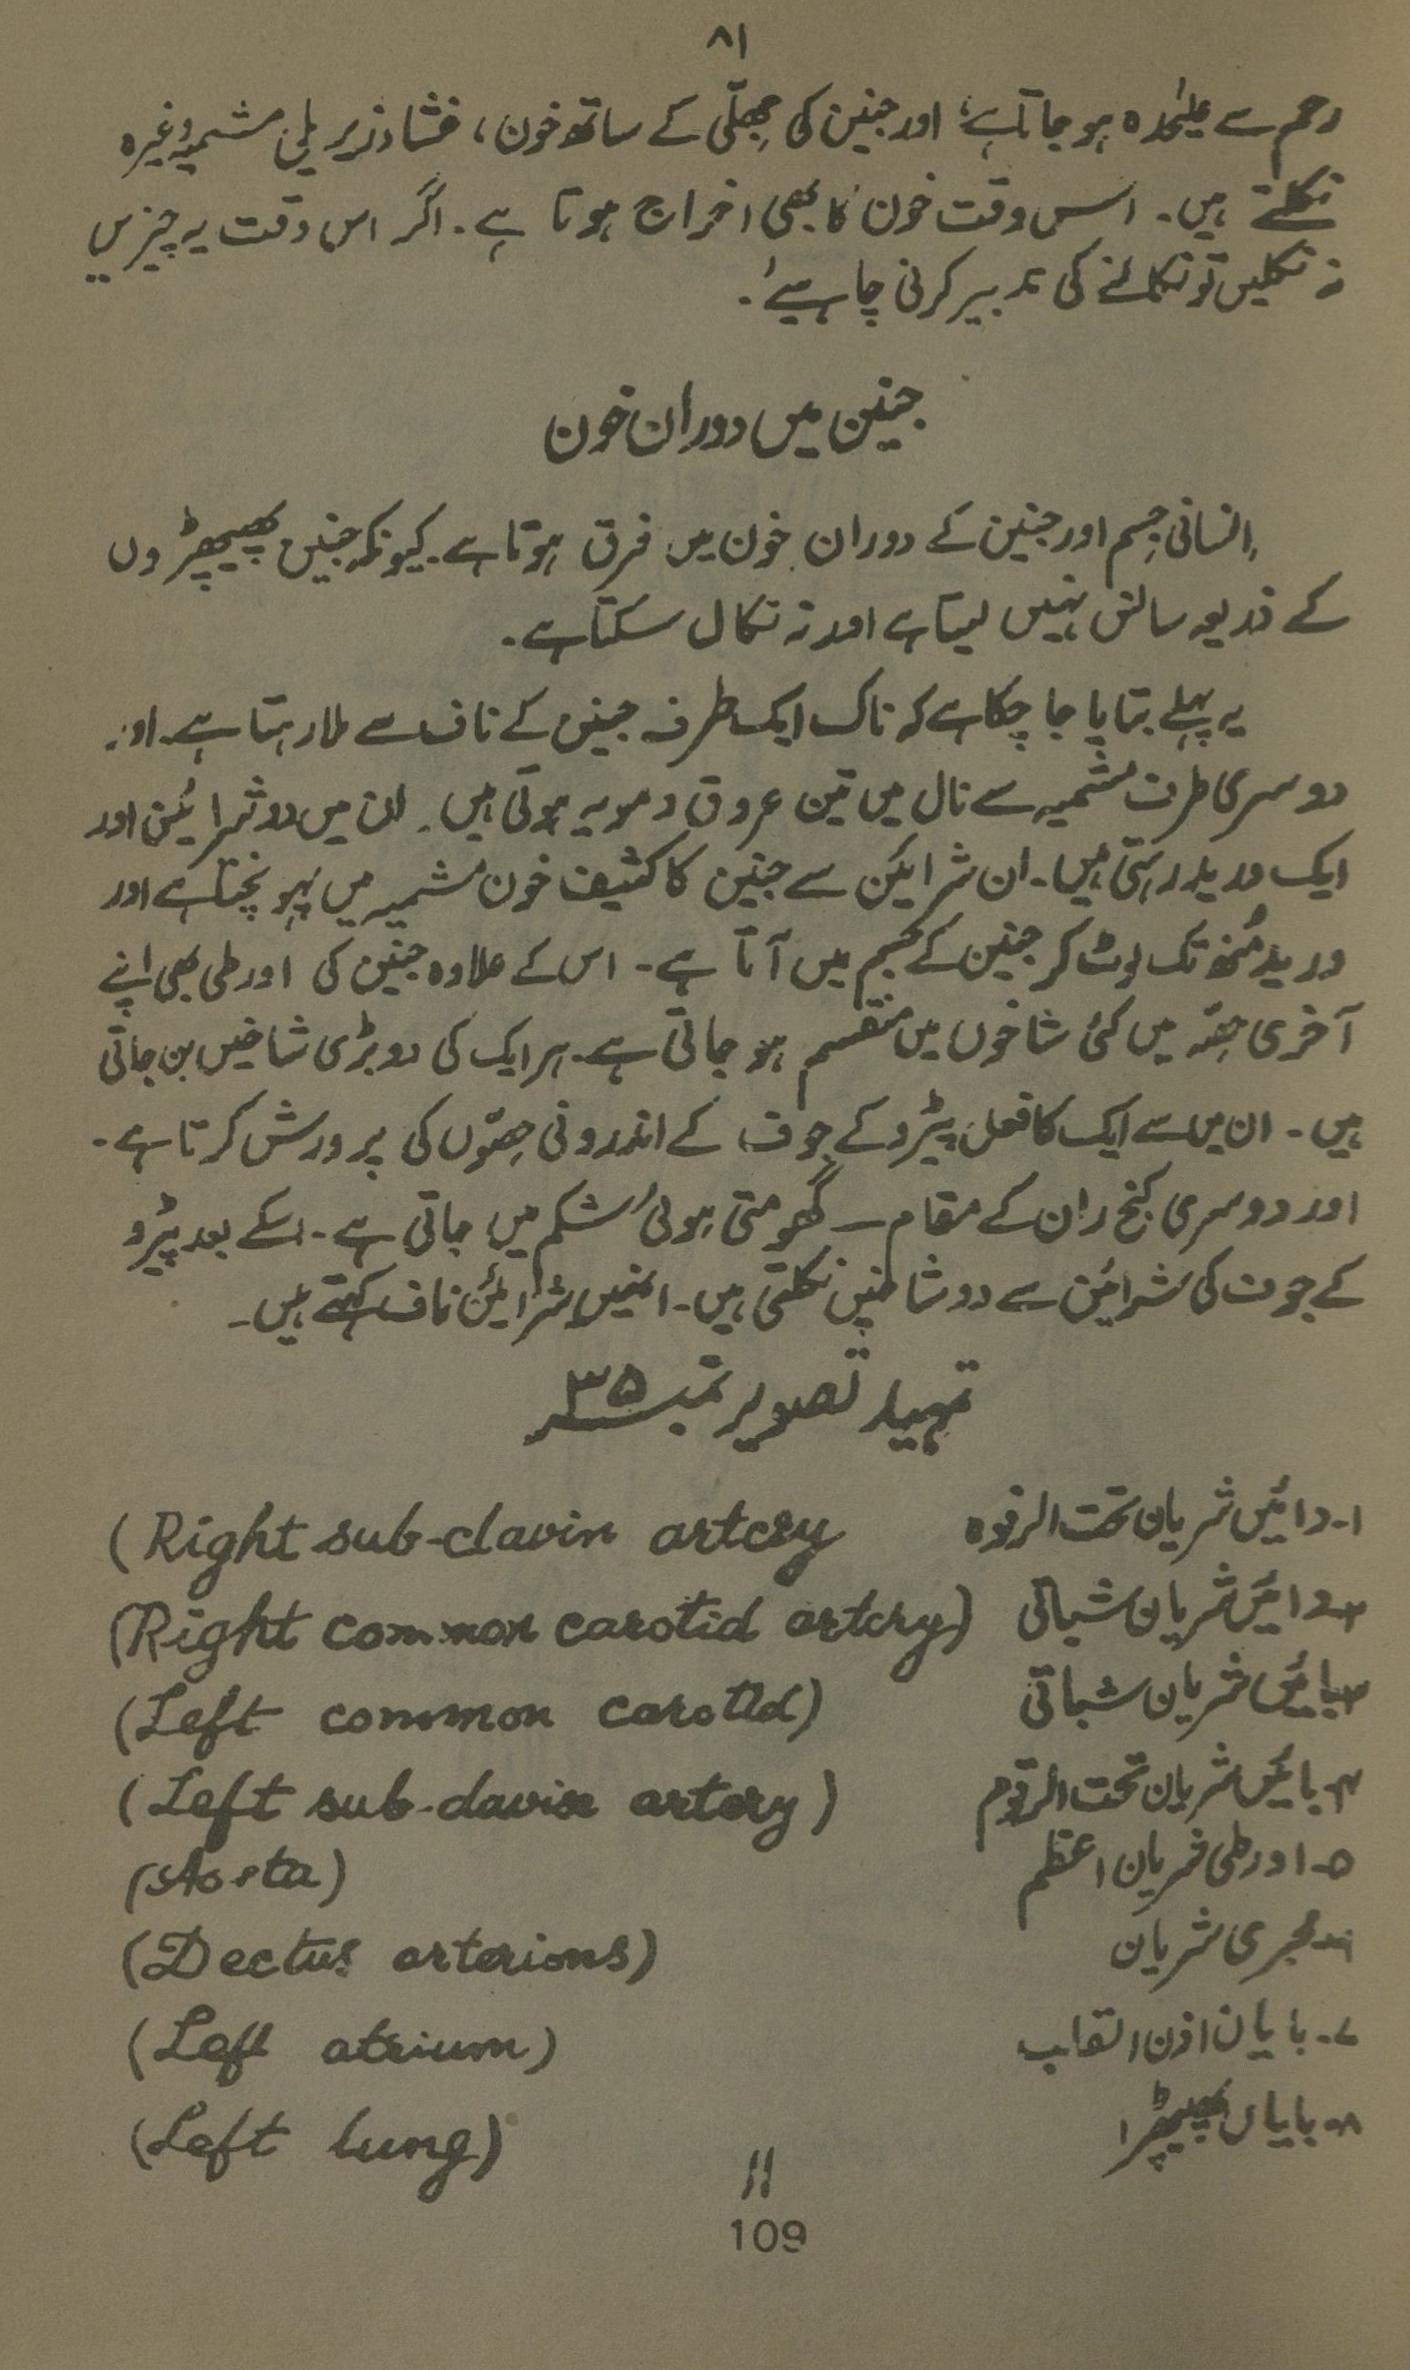 ۸۱
رحم سے علیٰحدہ ہو جاتا ہے، اور جنین کی جھلّی کے ساتھ خون، غشاء زیریلی مشمیہ وغیرہ
نکلتے ہیں۔ اس وقت خون کا بھی اخراج ہوتا ہے۔ اگر اس وقت یہ چیزیں
نہ نکلیں تو نکالنے کی تدبیر کرنی چاہیئے۔
جنین میں دوران خون
اِنسانی جِسم اور جنین کے دوران خون میں فرق ہوتا ہے۔ کیونکہ جنین پھیپھڑوں
کے ذریعہ سانس نہیں لیتا ہے اور نہ نکال سکتا ہے۔
یہ پہلے بتایا جا چکا ہے کہ ناک ایک طرف جنین کے ناف سے ملا رہتا ہے۔ اور
دوسری طرف مشمیہ سے نال میں تین عروق دمویہ ہوتی ہیں۔ ان میں دو شرائین اور
ایک ورید رہتی ہیں۔ ان شرایئن سے جنین کا کثیف خون مشمیہ میں پہونچتا ہے اور
ورید مُنھ تک لوٹ کر جنین کے جسم میں آتا ہے۔ اس کے علاوہ جنین کی اورطی بھی اپنے
آخری حِصّہ میں کئی شاخوں میں منقسم ہو جاتی ہے۔ ہر ایک کی دو بڑی شاخیں بن جاتی
ہیں۔ ان میں سے ایک کا فعل پیڑو کے جوف کے اندرونی حِصّوں کی پرورش کرتا ہے۔
اور دوسری کنج ران کے مقام سے گھومتی ہوئی شکم میں جاتی ہے۔ اسکے بعد پیڑو
کے جوف کی شرائین سے دو شاخیں نکلتی ہیں۔ انہیں شرائین ناف کہتے ہیں۔
تمہید تصویر نمبر ۳۵
۱۔ دائیں شریان تحت الرقوہ (Right sub-clavin artery
۲۔ دائیں شریان شباتی (Right common carotid artery)
۳۔ بائیں شریان شباتی (Left common carotid)
۴۔ بائیں شریان تحت الرقوم (Left sub-davin artery)
۵۔ اورطی شریان اعظم (Aorta)
۶۔ مجری شریان (Dectus arterions)
۷۔ بایان اذن القلب (Left atrium)
۸۔ بایاں پھیپھڑا (Left lung)
11
109